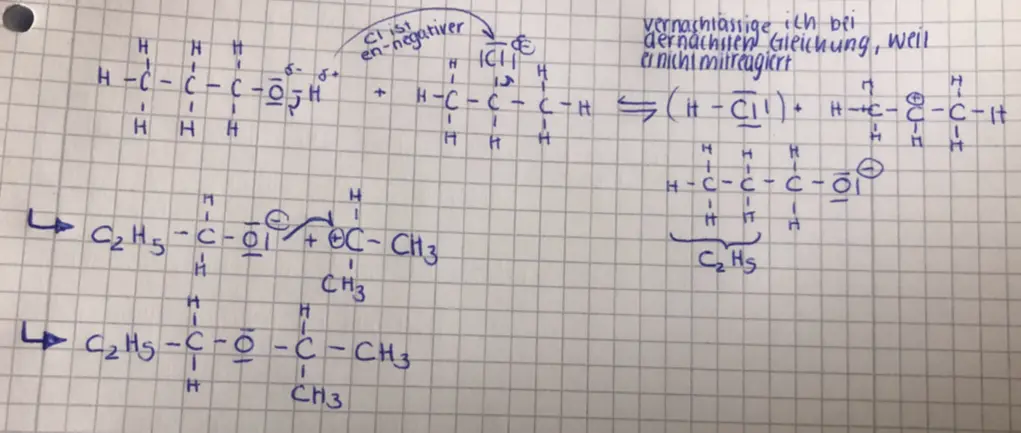 Cl ist
en-negativer
vernachlässige ich bei
der nächsten Gleichung, weil
er nicht mitreagiert
H H H
H - C - C - C - O - H
δ- δ+
H H H
+
|Cl| ⊖
H H
H - C - C - C - H
H H H
⇌ (H - Cl|) +
H H
H - C - C - C - H
⊕
H H H
H H H
H - C - C - C - O| ⊖
H H H
C2H5
H H
↳ C2H5 - C - O| ⊖ + ⊕C - CH3
H CH3
H H
↳ C2H5 - C - O - C - CH3
H CH3